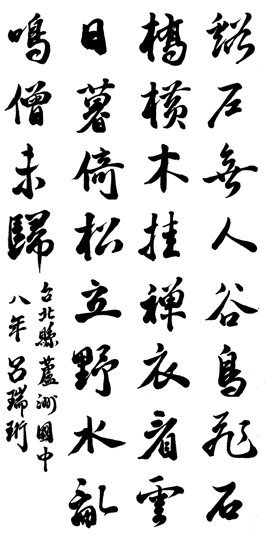 谿石無人谷鳥飛石
橋橫木挂禪衣看雲
日暮倚松立野水亂
鳴僧未歸
台北縣蘆洲國中
八年呂瑞珩